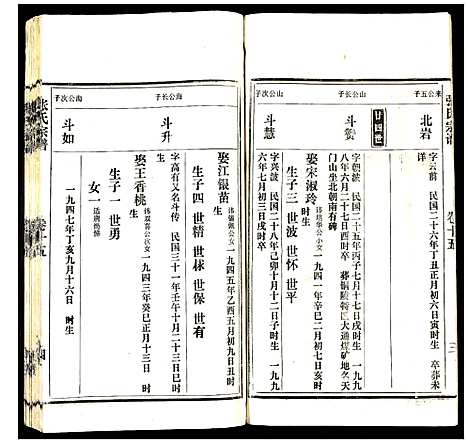 张氏宗谱
卷十五
三
来公五子
北岩
字云蔚 民国二十六年丁丑正月初六日寅时生 卒葬未
廿四世
山公长子
斗赟
字朝波 民国二十五年丙子七月十七日戌时生 一九九
八年六月二十七日酉时卒 葬铜陵特区大通煤矿地名天
门山坐北朝南有碑
娶宋淑玲
一九四一年辛巳二月初四日寅时生
生子三 世波 世怀 世平
山公次子
斗慧
字兴波 民国二十八年己卯十月十二日子时生 一九九
六年七月初三日戌时卒
海公长子
斗升
字高有又名斗传 民国三十一年壬午十月二十三日巳时
生
娶江银苗
一九四五年乙酉五月初九日丑时
生
生子四 世情 世禄 世保 世有
娶王香桃
一九四三年癸巳正月十三日 时
生
生子一 世勇
女一
海公次子
斗如
一九四七年丁亥九月十六日 时生
张氏宗谱
卷十五
四